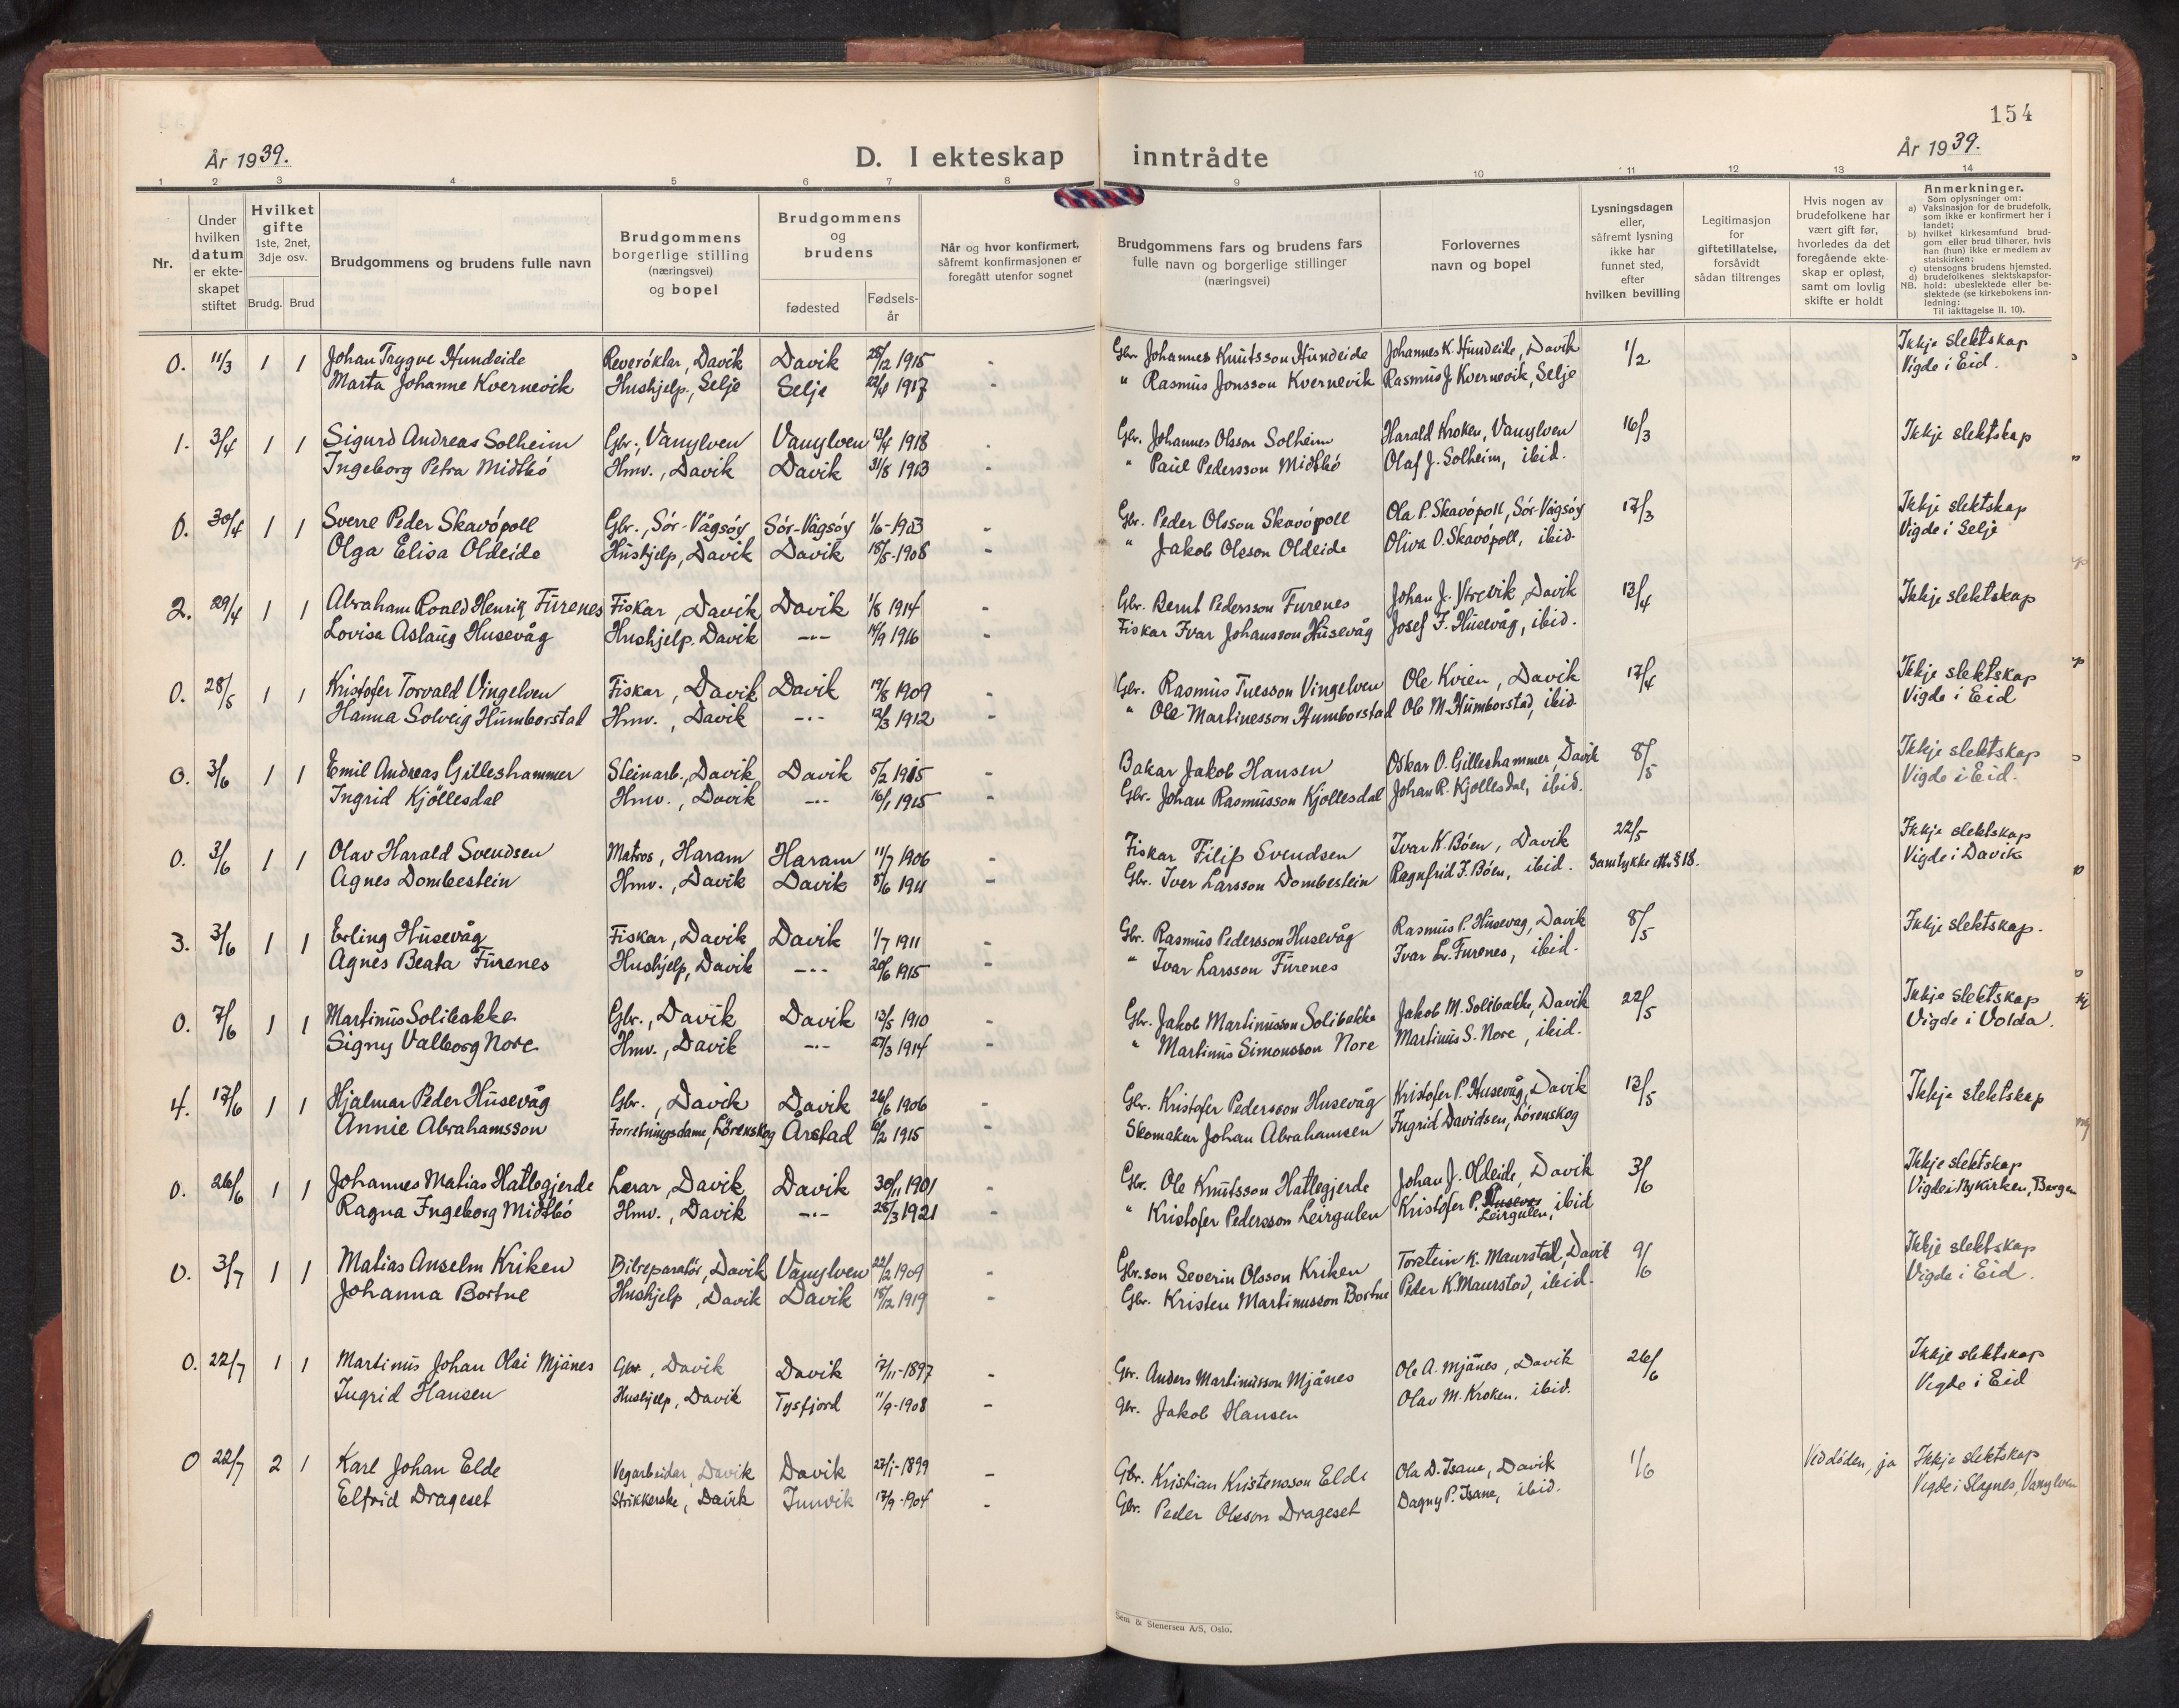 154
År 1939.
D. I ekteskap inntrådte
År 1939.
1 2 3 4 5 6 7 8 9 10 11 12 13 14
Nr.
Under hvilken datum er ekte-skapet stiftet
Hvilket gifte 1ste, 2net, 3dje osv.
Brudg. Brud
Brudgommens og brudens fulle navn
Brudgommens borgerlige stilling (næringsvei) og bopel
Brudgommens og brudens
fødested
Fødsels-år
Når og hvor konfirmert, såfremt konfirmasjonen er foregått utenfor sognet
Brudgommens fars og brudens fars fulle navn og borgerlige stillinger (næringsvei)
Forlovernes navn og bopel
Lysningsdagen eller, såfremt lysning ikke har funnet sted, efter hvilken bevilling
Legitimasjon for giftetillatelse, forsåvidt sådan tiltrenges
Hvis nogen av brudefolkene har vært gift før, hvorledes da det foregående ekte-skap er opløst, samt om lovlig skifte er holdt
Anmerkninger.
Som oplysninger om:
a) Vaksinasjon for de brudefolk, som ikke er konfirmert her i landet;
b) hvilket kirkesamfund brud-gom eller brud tilhører, hvis han (hun) ikke er medlem av statskirken;
c) utensogns brudens hjemsted.
d) brudefolkenes slektskapsfor-hold: ubeslektede eller be-slektede (se kirkebokens inn-ledning:
NB.
Til iakttagelse II. 10).
0. 11/3 1 1 Johan Trygve Hundeide Reverøktar, Davik Davik 28/12 1915 - Gbr. Johannes Knutsson Hundeide Johannes K. Hundeide, Davik 1/2 Ikkje slektskap
Marta Johanne Kvernevik Hushjelp, Selje Selje 22/4 1917 - " Rasmus Jonsson Kvernevik Rasmus J. Kvernevik, Selje Vigde i Eid.
1. 3/4 1 1 Sigurd Andreas Solheim Gbr., Vanylven Vanylven 13/4 1918 - Gbr. Johannes Olsson Solheim Harald Kroken, Vanylven 16/3 Ikkje slektskap
Ingeborg Petra Midtbö Hmv., Davik Davik 31/8 1913 - " Paul Pedersson Midtbö Olaf J. Solheim, ibid.
0. 30/4 1 1 Sverre Peder Skavöpoll Gbr., Sör-Vågsöy Sör-Vågsöy 1/6-1903 - Gbr. Peder Olsson Skavöpoll Ola P. Skavöpoll, Sör-Vågsöy 17/3 Ikkje slektskap
Olga Elisa Oldeide Hushjelp, Davik Davik 18/5-1908 - " Jakob Olsson Oldeide Oliva O. Skavöpoll, ibid. Vigde i Selje
2. 29/4 1 1 Abraham Roald Henrig Furenes Fiskar, Davik Davik 1/8 1914 - Gbr. Bernt Pedersson Furenes Johan J. Ytrevik, Davik 13/4 Ikkje slektskap
Lovisa Aslaug Husevåg Hushjelp. Davik —·— 14/9 1916 - Fiskar Ivar Johansson Husevåg Josef I. Husevåg, ibid.
0. 28/5 1 1 Kristofer Torvald Vingelven Fiskar, Davik Davik 19/8 1909 Gbr. Rasmus Tuesson Vingelven Ole Kvien, Davik 17/4 Ikkje slektskap
Hanna Solveig Humborstad Hmv., Davik —·— 12/3 1912 - " Ole Martinesson Humborstad Ole M. Humborstad, ibid. Vigde i Eid
0. 3/6 1 1 Emil Andreas Gilleshammer Steinarb., Davik Davik 5/2 1915 - Bakar Jakob Hansen Oskar O. Gilleshammer Davik 8/5 Ikkje slektskap
Ingrid Kjöllesdal Hmv., Davik —·— 16/1 1915 - Gbr. Johan Rasmusson Kjöllesdal Johan R. Kjöllesdal, ibid. Vigde i Eid.
0. 3/6 1 1 Olav Harald Svendsen Matros, Haram Haram 11/7 1906 - Fiskar Filip Svendsen Ivar K. Böen, Davik 22/5 Ikkje slektskap
Agnes Dombestein Hmv., Davik Davik 8/6 1911 - Gbr. Iver Larsson Dombestein Ragnfrid I. Böen, ibid. Samtykke ett. § 18. Vigde i Davik
3. 3/6 1 1 Erling Husevåg Fiskar, Davik Davik 1/7 1911 - Gbr. Rasmus Pedersson Husevåg Rasmus P. Husevag, Davik 8/5 Ikkje slektskap.
Agnes Beata Furenes Hushjelp, Davik —·— 20/6 1915 - " Ivar Larsson Furenes Ivar L. Furenes, ibid.
0. 7/6 1 1 Martinus Solibakke Gbr., Davik Davik 13/5 1910 - Gbr. Jakob Martinusson Solibakke Jakob M. Solibakke, Davik 22/5 Ikkje slektskap
Signy Valborg Nore Hmv., Davik —·— 27/3 1914 - " Martinus Simonsson Nore Martinus S. Nore, ibid. Vigde i Volda.
4. 17/6 1 1 Hjalmar Peder Husevåg Gbr., Davik Davik 26/6 1906 - Gbr. Kristofer Pedersson Husevåg Kristofer P. Husevåg, Davik 13/5 Ikkje slektskap
Annie Abrahamsson Forretningsdame, Lörenskog Årstad 6/2 1915 - Skomakar Johan Abrahamsen Ingrid Davidsen, Lörenskog
0. 26/6 1 1 Johannes Matias Hatlegjerde Lærar, Davik Davik 30/11 1901 - Gbr. Ole Knutsson Hatlegjerde Johan J. Oldeide, Davik 3/6 Ikkje slektskap
Ragna Ingeborg Midtbö Hmv., Davik —·— 28/3 1921 - " Kristofer Pedersson Leirgulen Kristofer P. Leirgulen, ibid Vigde i Nykirken, Bergen
0. 3/7 1 1 Matias Anselm Kriken Bilreparatör, Davik Vanylven 22/2 1909 - Gbr.son Severin Olsson Kriken Torstein K. Maurstad, Davik 9/6 Ikkje slektskap
Johanna Bortne Hushjelp, Davik Davik 18/12 1919 - Gbr. Kristen Martinusson Bortne Peder K. Maurstad, ibid. Vigde i Eid.
0. 22/7 1 1 Martinus Johan Olai Mjånes Gbr., Davik Davik 7/11-1897 - Gbr. Anders Martinusson Mjånes Ole A. Mjånes, Davik 26/6 Ikkje slektskap
Ingrid Hansen Hushjelp, Davik Tysfjord 11/9-1908 - Gbr. Jakob Hansen Olav M. Kroken, ibid. Vigde i Eid
0 22/7 2 1 Karl Johan Elde Vegarbeidar, Davik Davik 27/1-1899 - Gbr. Kristian Kristensson Elde Ola D. Isane, Davik 1/6 Ved döden, ja Ikkje slektskap
Elfrid Drageset Strikkerske, Davik Innvik 17/9-1904 - Gbr. Peder Olsson Drageset Dagny P. Isane, ibid. Vigde i Slagnes, Vanylven
Sem & Stenersen A/S, Oslo.